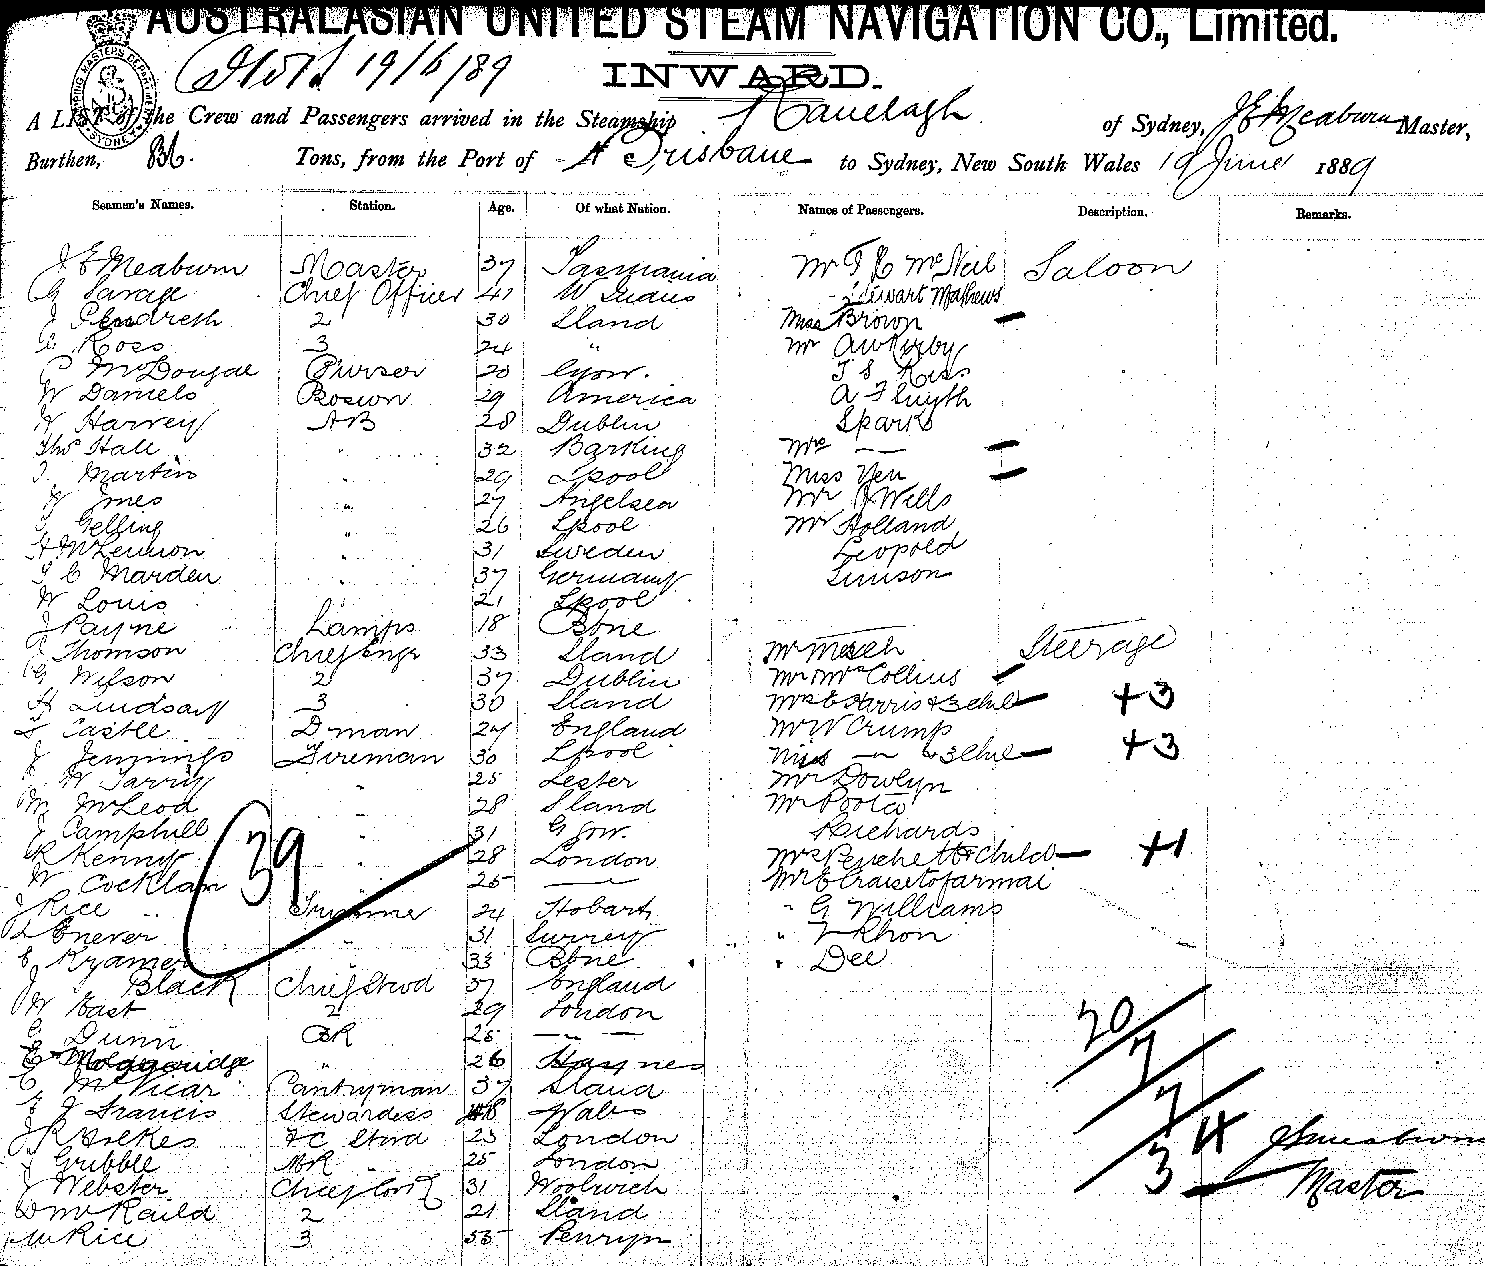 AUSTRALASIAN UNITED STEAM NAVIGATION CO., Limited.
19/6/89
INWARD.
A LIST of the Crew and Passengers arrived in the Steamship Ranelagh of Sydney, J E Meaburn Master,
Burthen, 836. Tons, from the Port of Brisbane to Sydney, New South Wales 19 June 1889
Seamen's Names. Station. Age. Of what Nation. Names of Passengers. Description. Remarks.
J E Meaburn Master 37 Tasmania Mr T C McNeil Saloon
G Savage Chief Officer 41 W Indies Stewart Mathews
J Pendreth 2 30 Sland Miss Brown —
Ross 3 24 " Mr A W Kirby
McDougal Purser 20 Gow. T S Ross
W Daniels Bosun 29 America A F Smyth
H Harvey AB 28 Dublin Spark
Thos Hall " 32 Barking Mrs — —
J Martin " 29 Lpool Miss Yen —
W Jones " 27 Angelsea Mr J Wells
Gelling " 26 Lpool Mr Holland
H McLennon " 31 Sweden Leopold
J C Marden " 37 Germany Simson
W Louis " 21 Lpool
J Payne Lamps 18 Bone
Thomson Chief Engr 33 Sland Mr Mesch Steerage
G Wilson 2 37 Dublin Mr McCollins
H Lindsay 3 30 Sland Mrs E Harris & 3 chil — +3
Castle D-man 27 England Mr W Crump
J Jennings Fireman 30 Lpool Miss — & 3 chil — +3
W Tarry " 25 Lester Mr Dowlyn
M McLeod " 28 Sland Mr Poota
J Camphill " 31 Gow. Richards
R Kenny " 28 London Mrs Peuchett & Child — +1
W Cocklan " 25 — Mr E
J Rice Trimmer 24 Hobart " G Williams
Enever " 31 Surrey " Khon
C Kramer " 33 Bone " Dee
39
J Black Chief Stwd 37 England
W East 2 29 London
G Dunn BR 25 — —
E Moggeridge " 26 Haynes
C McVicar Pantryman 37 Sland
J Francis Stewardess 48 Wales
J R Hilkes FC Stwd 23 London
J Gribble MR 25 London
J Webster Chief Cook 31 Woolwich
D McKaild 2 21 Sland
W Rice 3 55 Penryn
20/7/7/3
J E Meaburn
Master